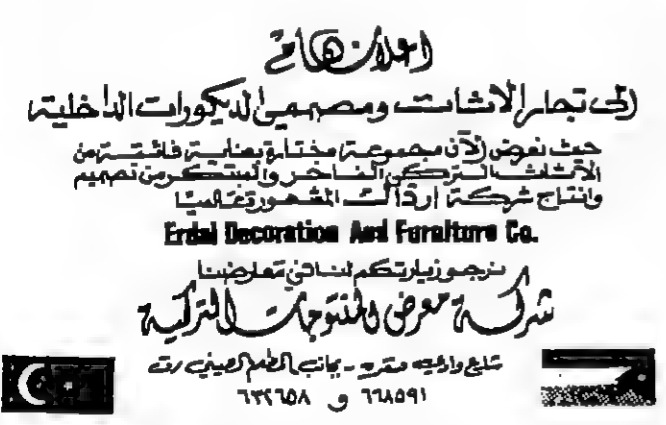 اعلان هام
إلى تجار الاثاث ومصممي الديكورات الداخلية
حيث نعرض الآن مجموعة مختارة بعناية فائقة من
الاثاث التركي الفاخر والمبتكر من تصميم
وانتاج شركة اردال المشهورة عالميا
Erdal Decoration And Furniture Co.
نرجو زيارتكم لنا في معارضنا
شركة معرض المنتوجات التركية
شارع وادي صقره - بجانب المطعم الصيني ت
٦٦٨٥٩١ و ٦٣٢٦٥٨